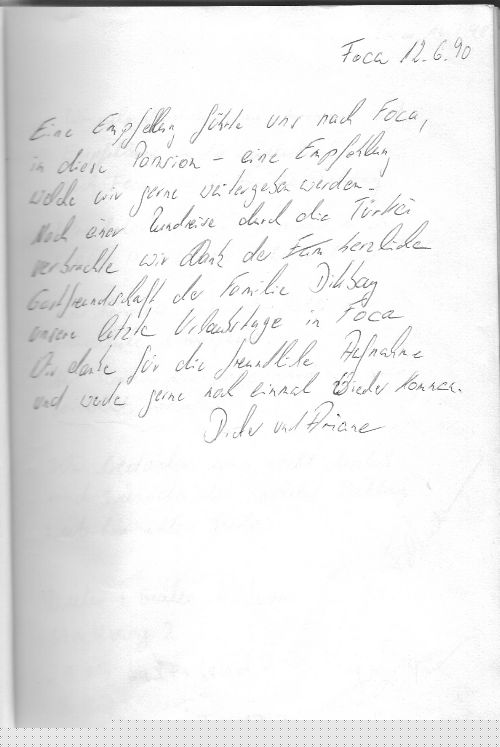 Foca 12.6.90
Eine Empfehlung führte uns nach Foca,
in diese Pension – eine Empfehlung
welche wir gerne weitergeben werden.
Nach einer Rundreise durch die Türkei
verbrachte wir dank der Fam herzliche
Gastfreundschaft der Familie Dikbay
unsere letzte Urlaubstage in Foca
Wir danke für die freundliche Aufnahme
und werde gerne noch einmal Wieder kommen.
Dieter und Ariane